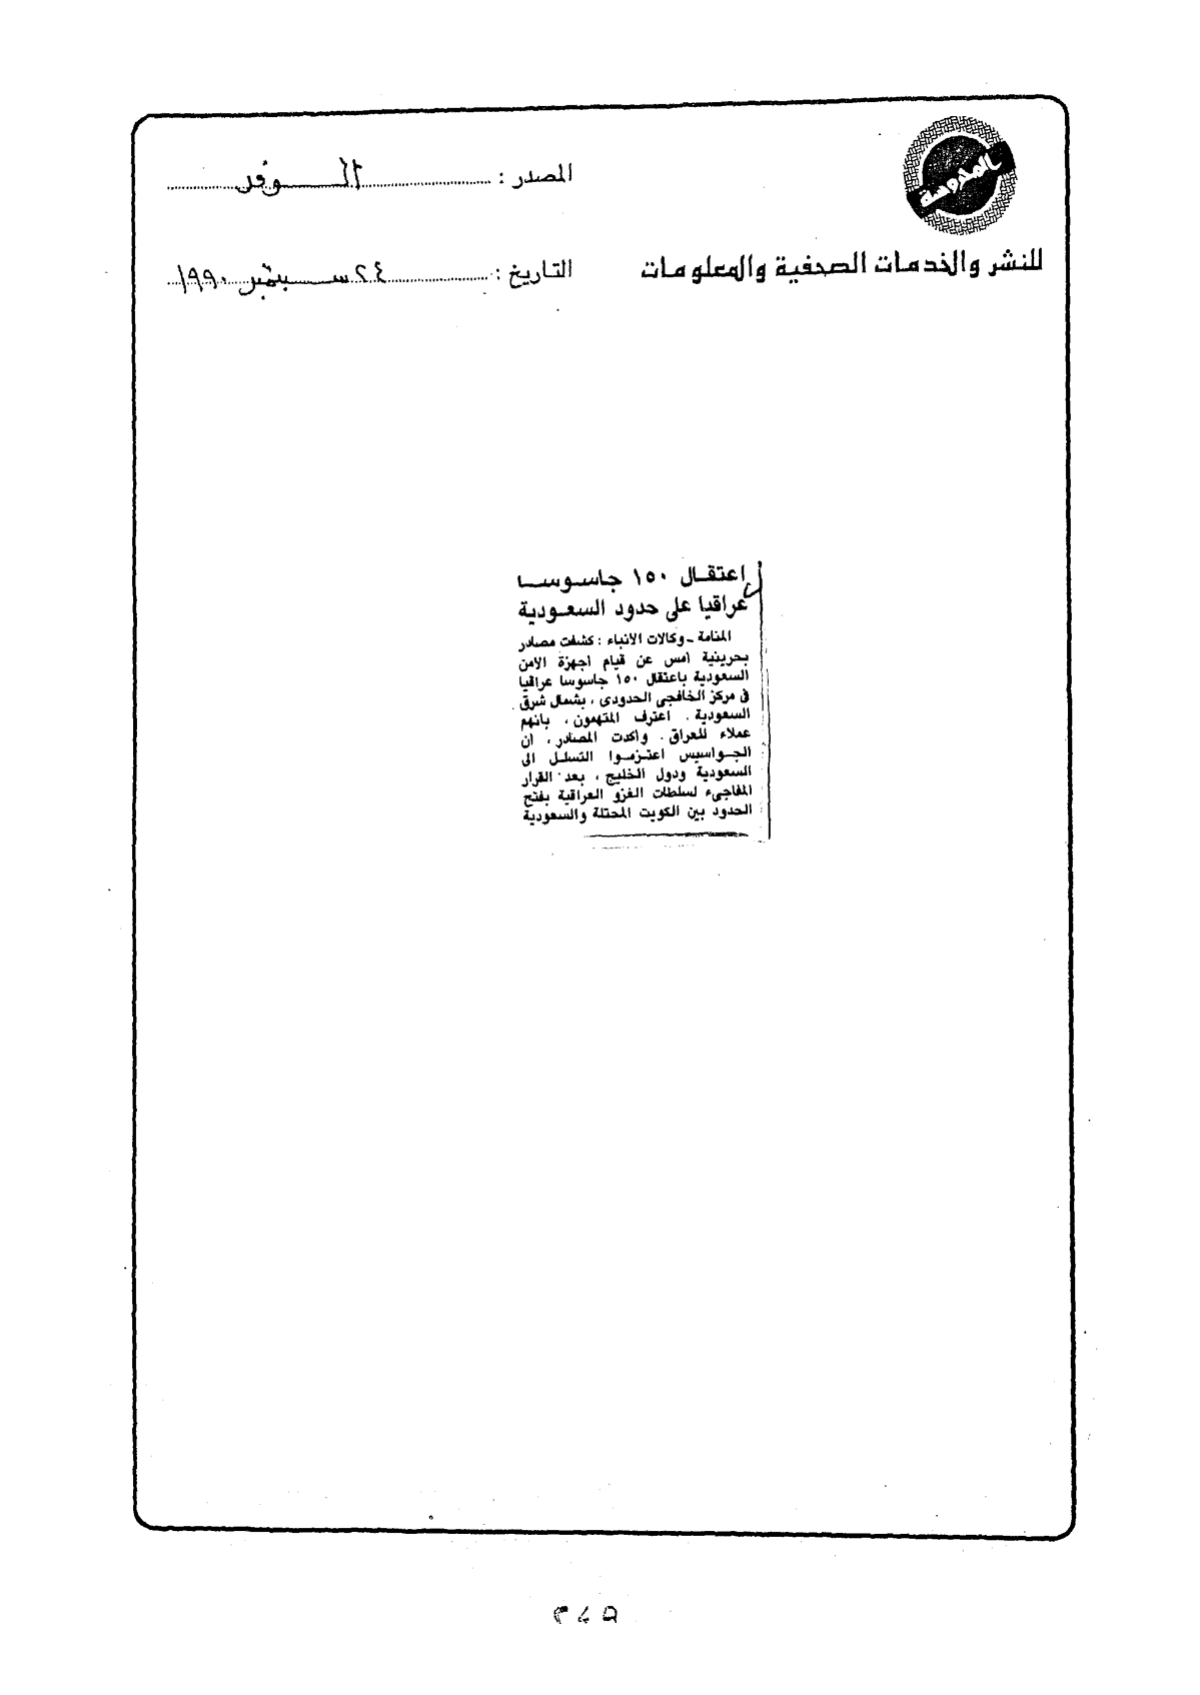 المصدر : الوفد
للنشر والخدمات الصحفية والمعلومات
التاريخ : ٢٤ سبتمبر ١٩٩٠
اعتقال ١٥٠ جاسوسا
عراقيا على حدود السعودية
المنامة - وكالات الانباء : كشفت مصادر
بحرينية أمس عن قيام اجهزة الأمن
السعودية باعتقال ١٥٠ جاسوسا عراقيا
فى مركز الخافجى الحدودى ، بشمال شرق
السعودية . اعترف المتهمون ، بانهم
عملاء للعراق . واكدت المصادر ، ان
الجواسيس اعتزموا التسلل الى
السعودية ودول الخليج ، بعد القرار
المفاجىء لسلطات الغزو العراقية بفتح
الحدود بين الكويت المحتلة والسعودية